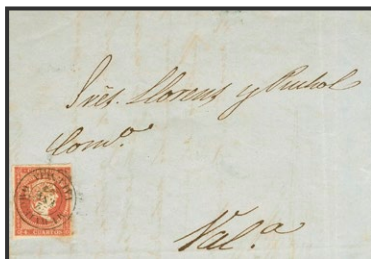 Sres. Llorens y Puchol
Com.º
Val.ª